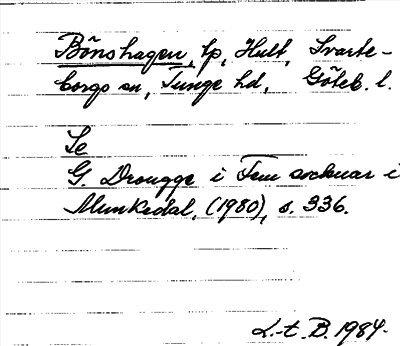 Bönshagen, lp, Hult, Svarte-
borgs sn, Tunge hd, Göteb. l.
Se
G. Drougge i Fem socknar i
Munkedal, (1980), s. 336.
L-t. B. 1984.